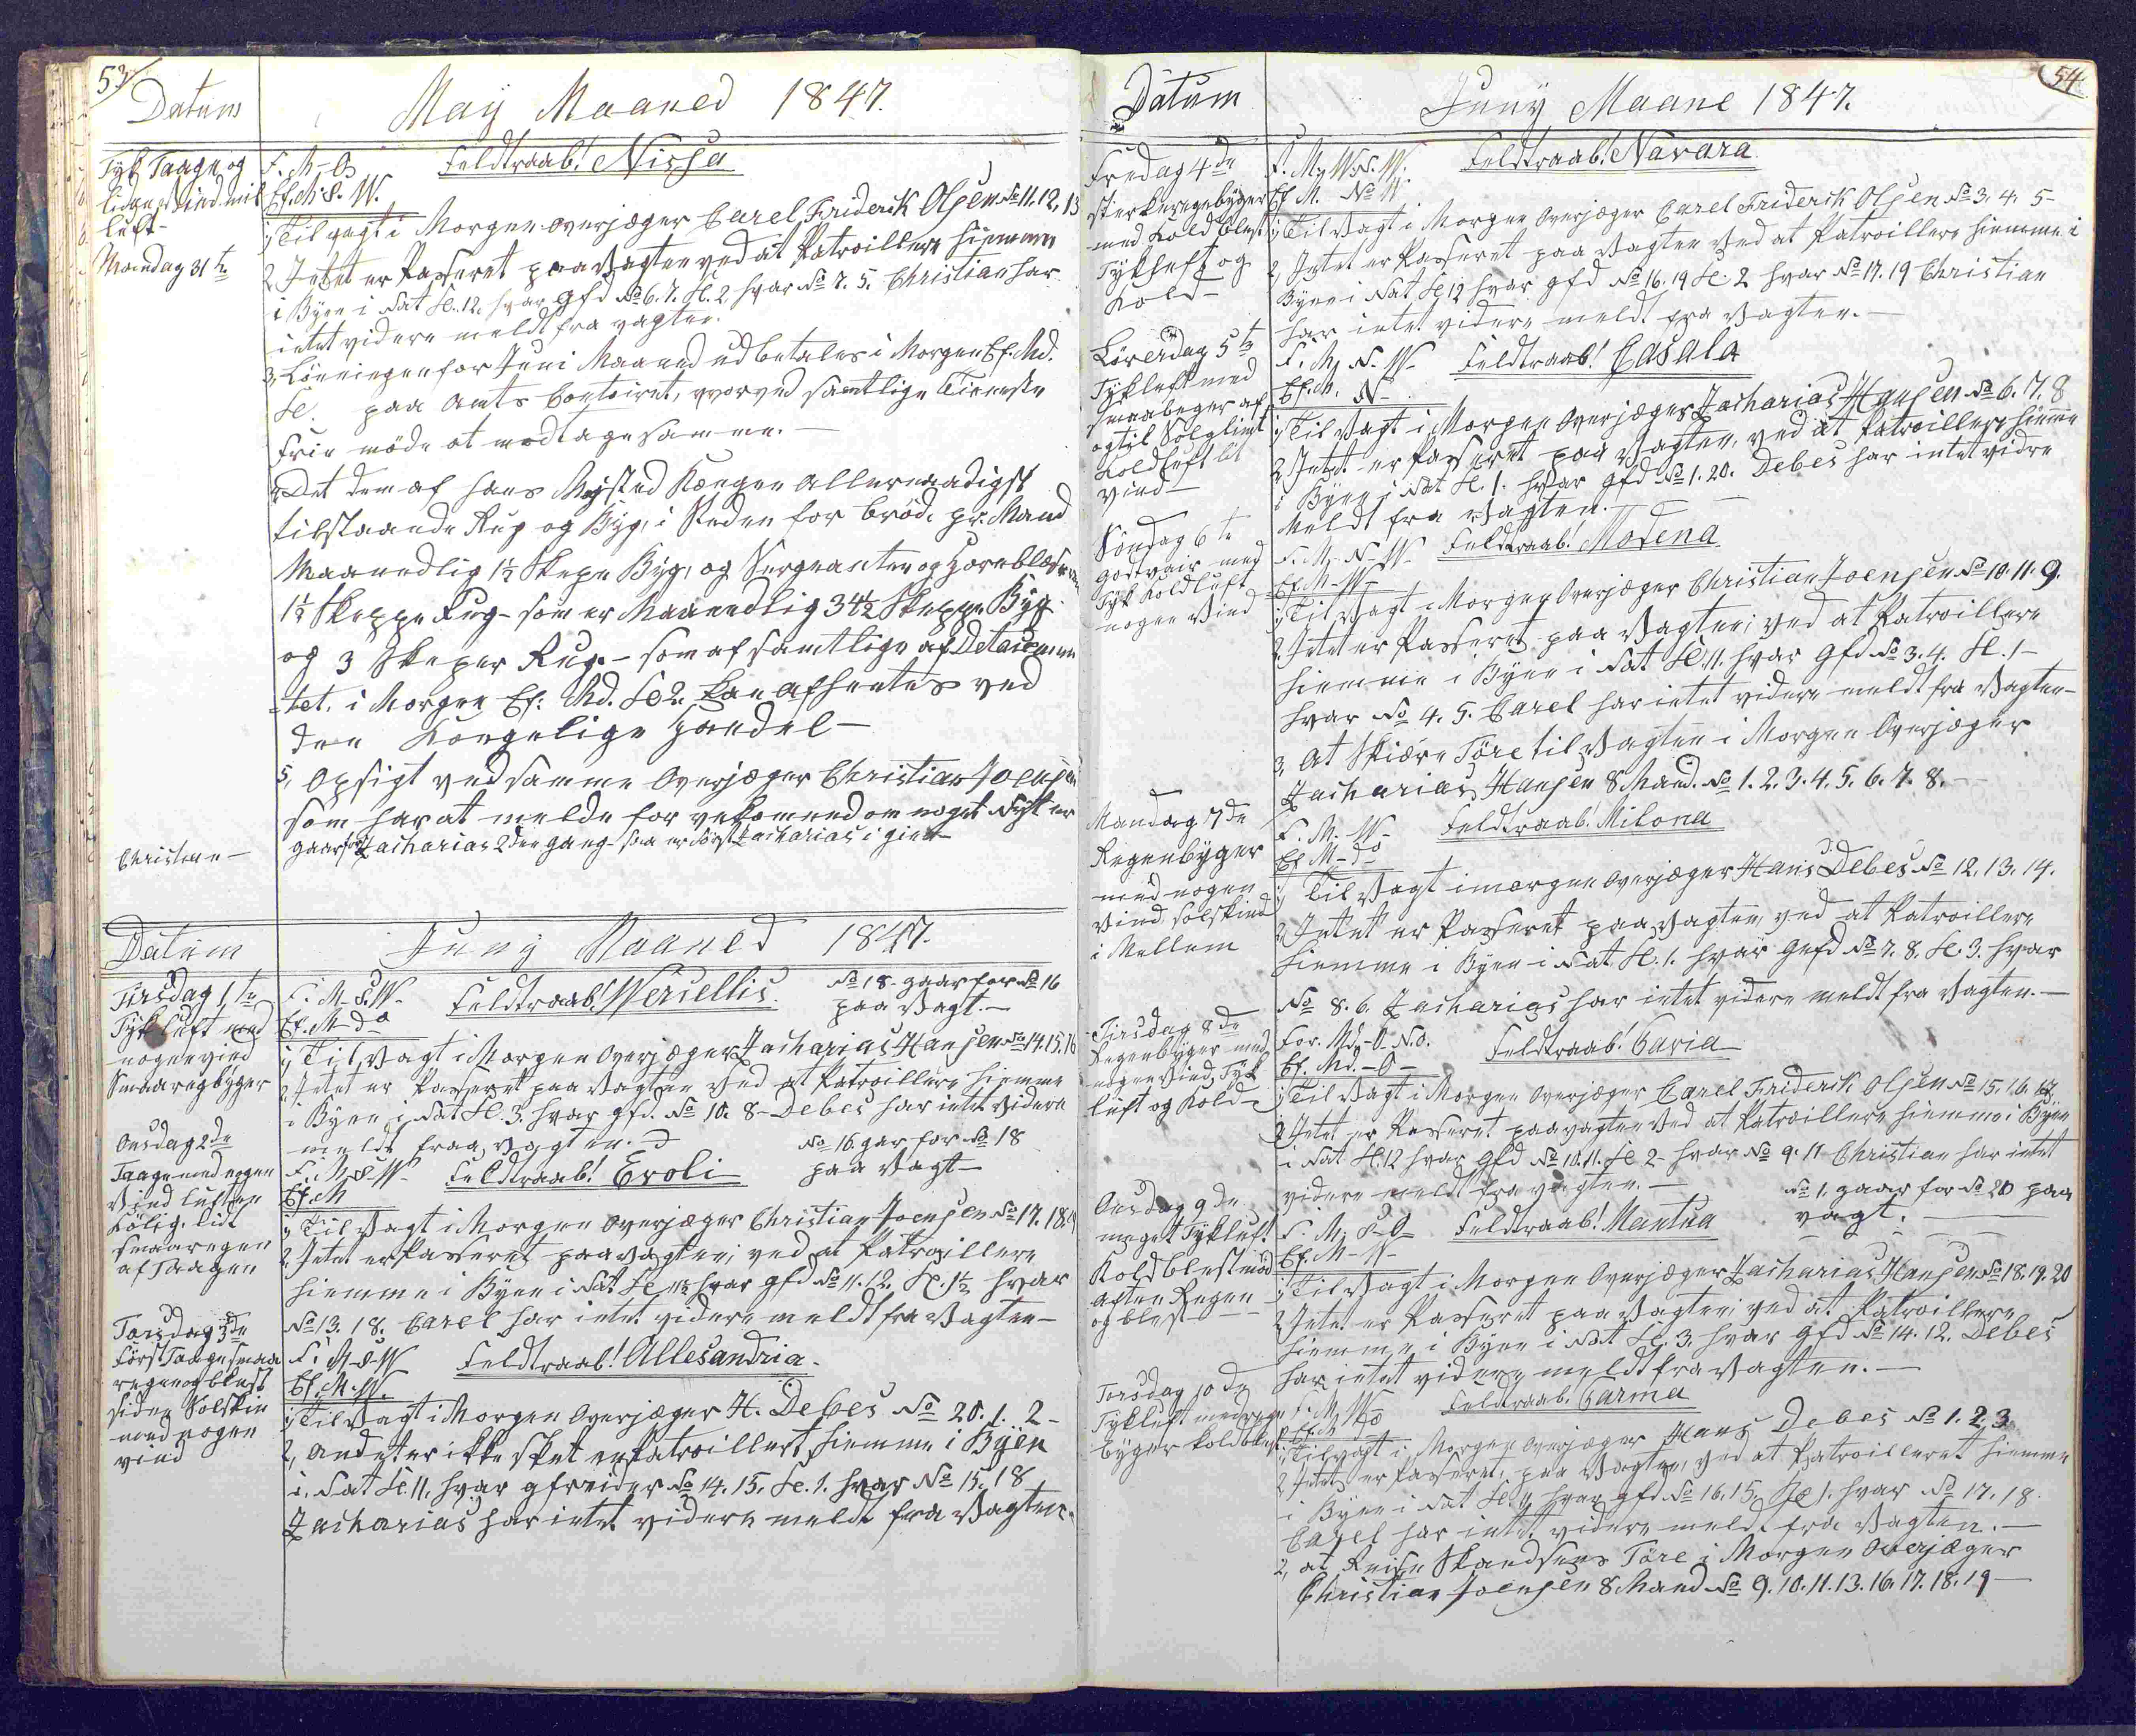 53
Datum
May Maaned 1847.
Tyk Taage og
liden Vind mil
luft -
Mandag 31te
F. M - O
Feldtraab! Nissa
Ef. M. S. W.
1, Til vagt i Morgen Overjæger Carel Friderik Olsen No 11. 12. 13
2, Intet er Passeret paa Vagten ved at Patroillere hiemme
i Byen i Nat Kl. 12. hvar gfd No 6. 7. Kl. 2 hvar No 7. 5. Christian har
intet videre meldt fra vagten.
3, Lönningen for Juni Maaned udbetales i Morgen Ef. Md.
Kl. paa Amts Contoiret, hvorved samtlige Tieneste
frie möde at modtage samme. —
Det dem af hans Majsted Kongen Allernaadigst
tilstaaende Rug og Byg, i Steden for bröd, pr. Mand
Maanedlig 1½ Skepe Byg, og Sergeanten og Hornblæseren
1½ Skeppe Rug - som er Maanedlig 34½ Skeppe Byg
og 3 Skeper Rug. - som af samtlige af Detaicemen
-tet. i Morgen Ef: Md. Kl 2. kan afhentes ved
den Kongelige Handel —
5, Opsigt ved samme Overjæger Christian Joensen
som har at melde for vekomend om noget Nyt er
Christian -
gaar for Zacharias 2den gang - saa er först Zacharias i gien -
Datum
Juny Maaned 1847.
Tirsdag 1te
Tyk luft med
nogen vind
Smaaregbyger
F. M - S. W -
Feldtraab! Wersellis.
No 18. gaar for No 16
paa Vagt. —
Ef. M - do
1, Til Vagt i Morgen Overjæger Zacharias Hansen No 14. 15. 16
2, Intet er Passeret paa Vagten ved at Patroillere hiemme
i Byen i Nat Kl. 3. hvar gfd. No 10. 8 - Debes har intet videre
meldt fraa vagten.
Onsdag 2de
Taage med nogen
Vind luften
kölig. lidt
smaaregen
af Taagen
No 16 gar for No 18
paa Vagt —
F. M - S - W -
Feldtraab! Evoli
Ef. M
1, Til Vagt i Morgen Overjæger Christian Joensen No 17. 18. 19
2, Intet er Passeret paa vagten; ved at Patroillere
hiemme i Byen i Nat Kl 11½ hvar gfd No 11. 12. Kl. 1½ hvar
No 13. 18. Carel har intet videre meldt fra Vagten —
Torsdag 3de
först Taage smaa
regen og blest
siden Solskin
med nogen
vind
F. M - S - W
Feldtraab! Allesandria -
Ef. M. W.
1, Til Vagt i Morgen Overjæger H. Debes No 20. 1. 2 -
2, andet er ikke sket er Patroillert, hiemme i Byen
i Nat Kl. 11. hvar gfreider No 14. 15. Kl. 1. hvar No 15. 18
Zacharias har intet videre meldt fra Vagten.
54
Datum
Juny Maane 1847.
Fredag 4de
sterke regebyger
med kold blest
Tykluft og
kold -
F. M. W. N. W.
Feldtraab! Navara
Ef M. No W
1, Til Vagt i Morgen Overjæger Carel Friderik Olsen No 3. 4. 5 -
2, Intet er Passeret paa Vagten ved at Patroillere hiemme i
Byen i Nat Kl 12 hvar gfd No 16. 19 Kl. 2 hvar No 17. 19 Christian
har intet videre meldt fra Vagten. —
Löverdag 5te
Tykluft med
smaabyger af
og til Solglimt
koldluft lit
vind —
F. M. N. W -
Feldtraab! Casala
Ef. M. N -
1, Til Vagt i Morgen Overjæger Zacharias Hansen No 6. 7. 8
2, Intet er Passeret paa Vagten, ved at Patroillere hieme
i Byen i Nat Kl. 1. hvar gfd No 1. 20. Debes har intet vidre
Meldt fra Vagten. —
Söndag 6te
godtvair med
Tyk koldluft
nogen Vind
F. M. N. W -
Feldtraab! Modena
Ef. M - W -
1, Til Vagt i Morgen Overjæger Christian Joensen No 10. 11. 9.
2, Intet er Passeret paa Vagten, ved at Patroillere
hiemme i Byen i Nat Kl. 11. hvar gfd No 3. 4. Kl. 1 -
hvar No 4. 5. Carel har intet videre meldt fra Vagten -
3, At Skiære Törv til Vagten i Morgen Overjæger
Zacharias Hansen 8 Mand. No 1. 2. 3. 4. 5. 6. 7. 8. —
Mandag 7de
Regenbyger
med nogen
Vind, Solskind
i Mellem
F. M. W -
Feldtraab! Milona
Ef M - do
1, Til Vagt i morgen Overjæger Hans D. Debes No 12. 13. 14.
2, Intet er Passeret paa Vagten, ved at Patroillere
hiemme i Byen i Nat. Kl. 1. hvar gefd No 7. 8. Kl. 3. hvar
No 8. 6. Zacharias har intet videre meldt fra Vagten. —
Tirsdag 8de
Regenbyger med
nogen Vind, Tyk
luft og kold -
For. Md - O. N. O.
Feldtraab! Pavia
Ef. Md. - O -
1, Til Vagt i Morgen Overjæger Carel Friderik Olsen No 15. 16. 17
2, Intet er Passeret paa vagten ved at Patroillere hiemme i Byen
i Nat Kl. 12 hvar gfd No 10. 11. Kl 2 - hvar No 9. 11 Christian har intet
videre meldt fra vagten. —
Onsdag 9de
meget Tykluft
Kold blest mod
aften Regen
og blest —
No 1. gaar for No 20 paa
vagt. —
F. M. S - O -
Feldtraab! Mantua
Ef. M - W -
1, Til Vagt i Morgen Overjæger Zacharias Hansen No 18. 19. 20
2, Intet er Passeret paa Vagten; ved at Patroillere
hiemme i Byen i Nat Kl. 3. hvar gfd No 14. 12. Debes
har intet videre meldt fra Vagten. —
Torsdag 10de
Tykluft med regen
byger kold blest
F. M. W -
Feldtraab. Parma
Ef. M do
1, Til vagt i Morgen Overjæger Hans Debes No 1. 2. 3
2, Intet er Passeret, paa Vagten, ved at Patroilleret hiemme
i Byen i Nat Kl. 11 hvar gfd No 16. 15. Kl 1. hvar No 17. 18.
Carel har intet videre meldt fra Vagten. —
2, at Reise Skandsens Törv i Morgen Overjæger
Christian Joensen 8 Mand No 9. 10. 11. 13. 16. 17. 18. 19 —